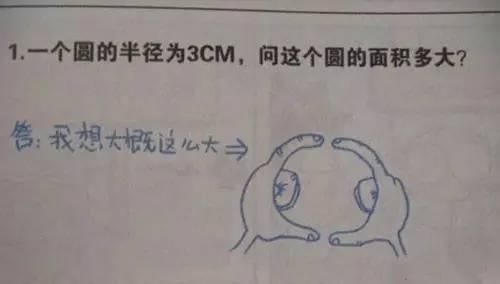 1.一个圆的半径为3CM，问这个圆的面积多大?
答:我想大概这么大⇒